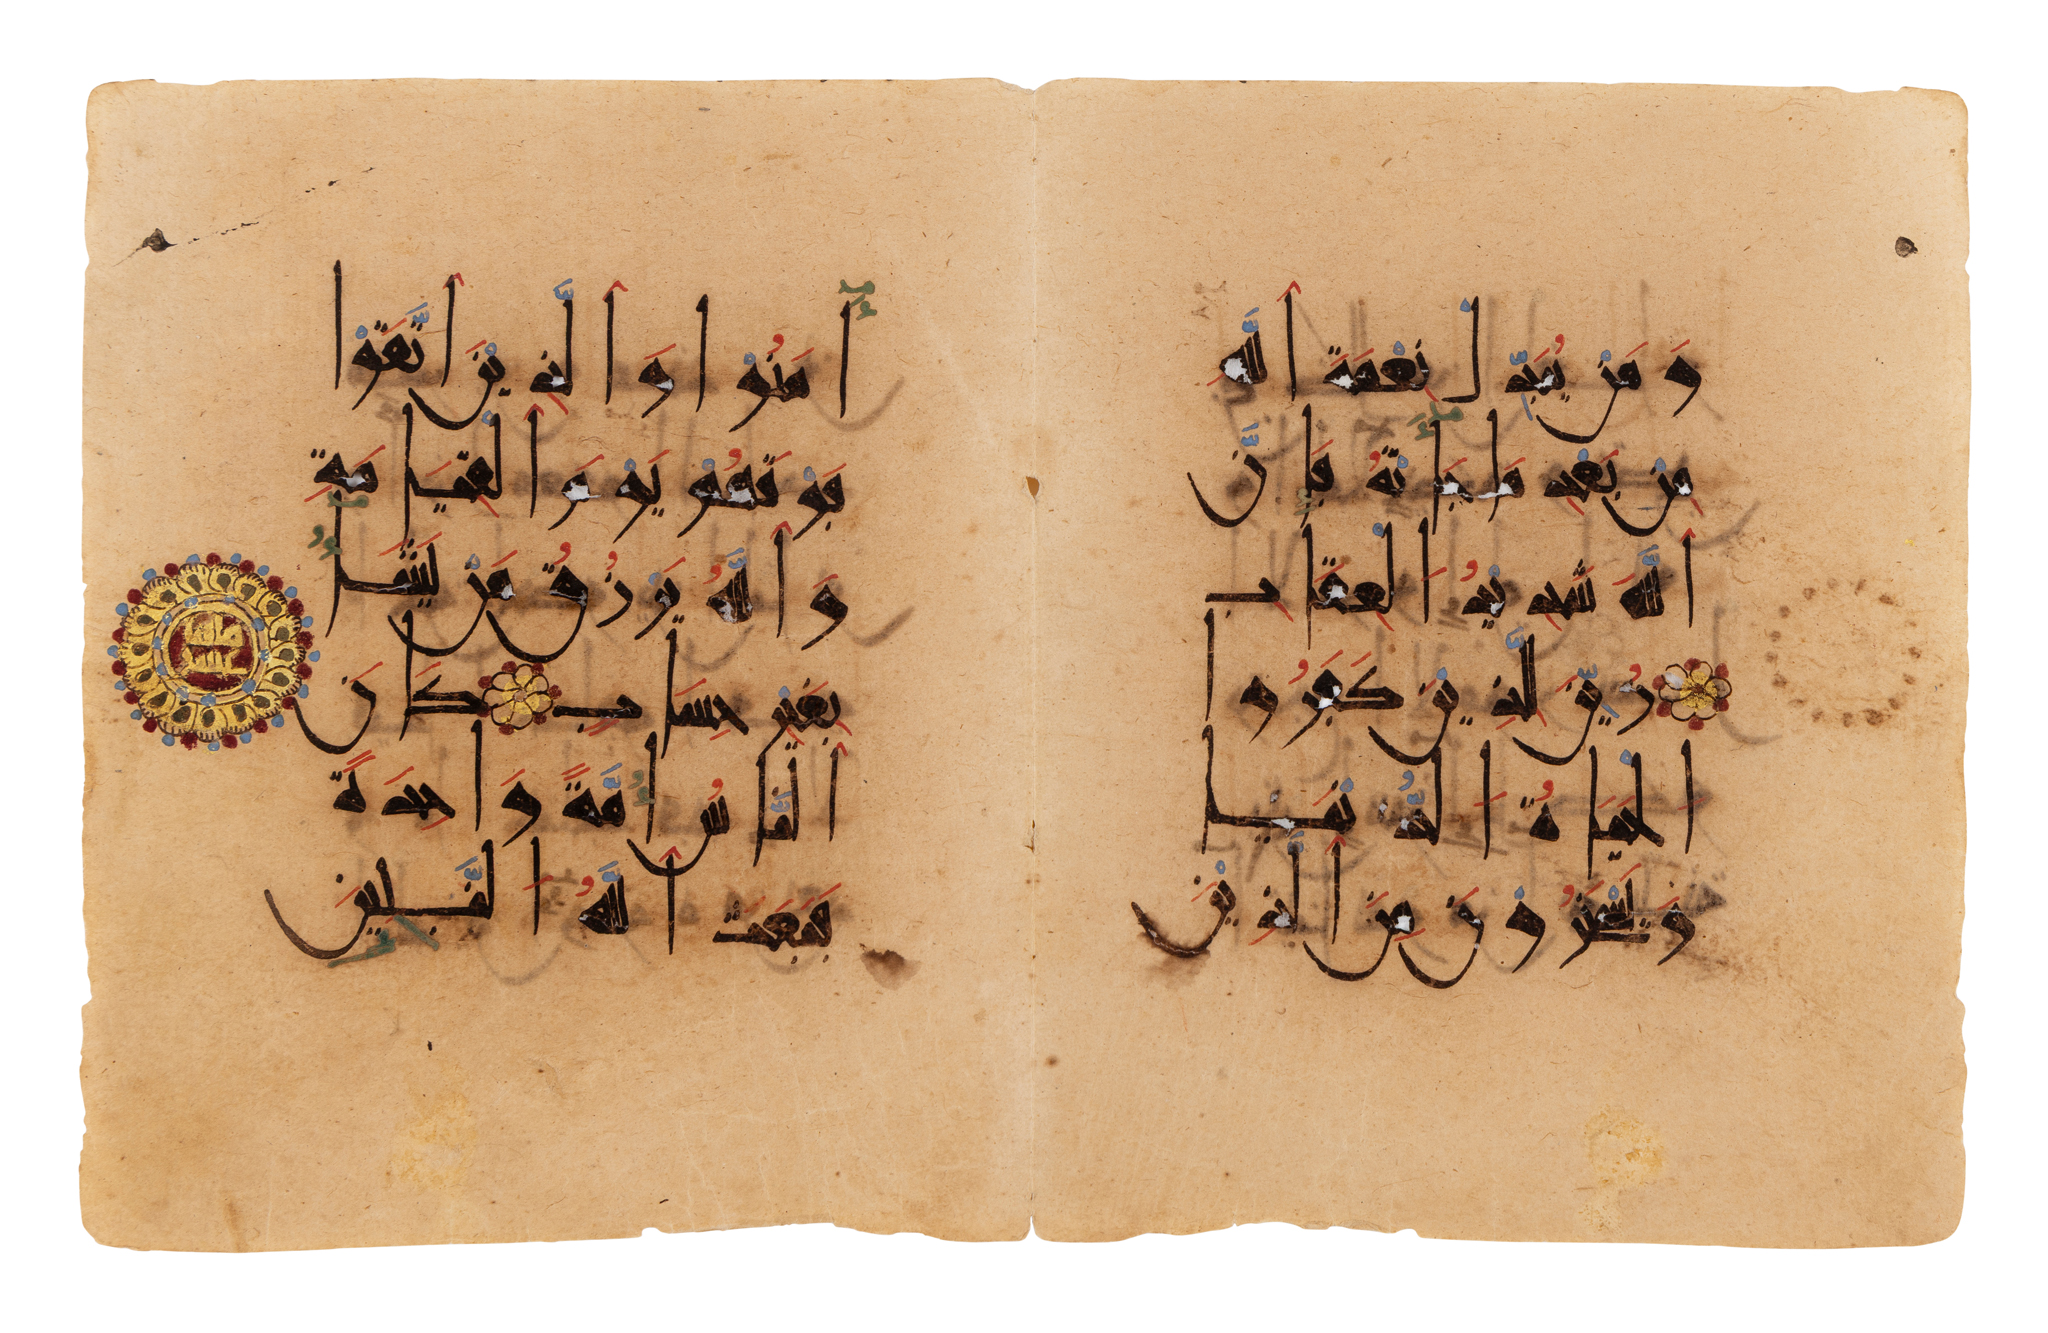 وَمَنْ يُبَدِّلْ نِعْمَةَ اللَّهِ
مِنْ بَعْدِ مَا جَاءَتْهُ فَإِنَّ
اللَّهَ شَدِيدُ الْعِقَابِ
زُيِّنَ لِلَّذِينَ كَفَرُوا
الْحَيَاةُ الدُّنْيَا
وَيَسْخَرُونَ مِنَ الَّذِينَ
آمَنُوا وَالَّذِينَ اتَّقَوْا
فَوْقَهُمْ يَوْمَ الْقِيَامَةِ
وَاللَّهُ يَرْزُقُ مَنْ يَشَاءُ
بِغَيْرِ حِسَابٍ كَانَ
النَّاسُ أُمَّةً وَاحِدَةً
فَبَعَثَ اللَّهُ النَّبِيِّينَ